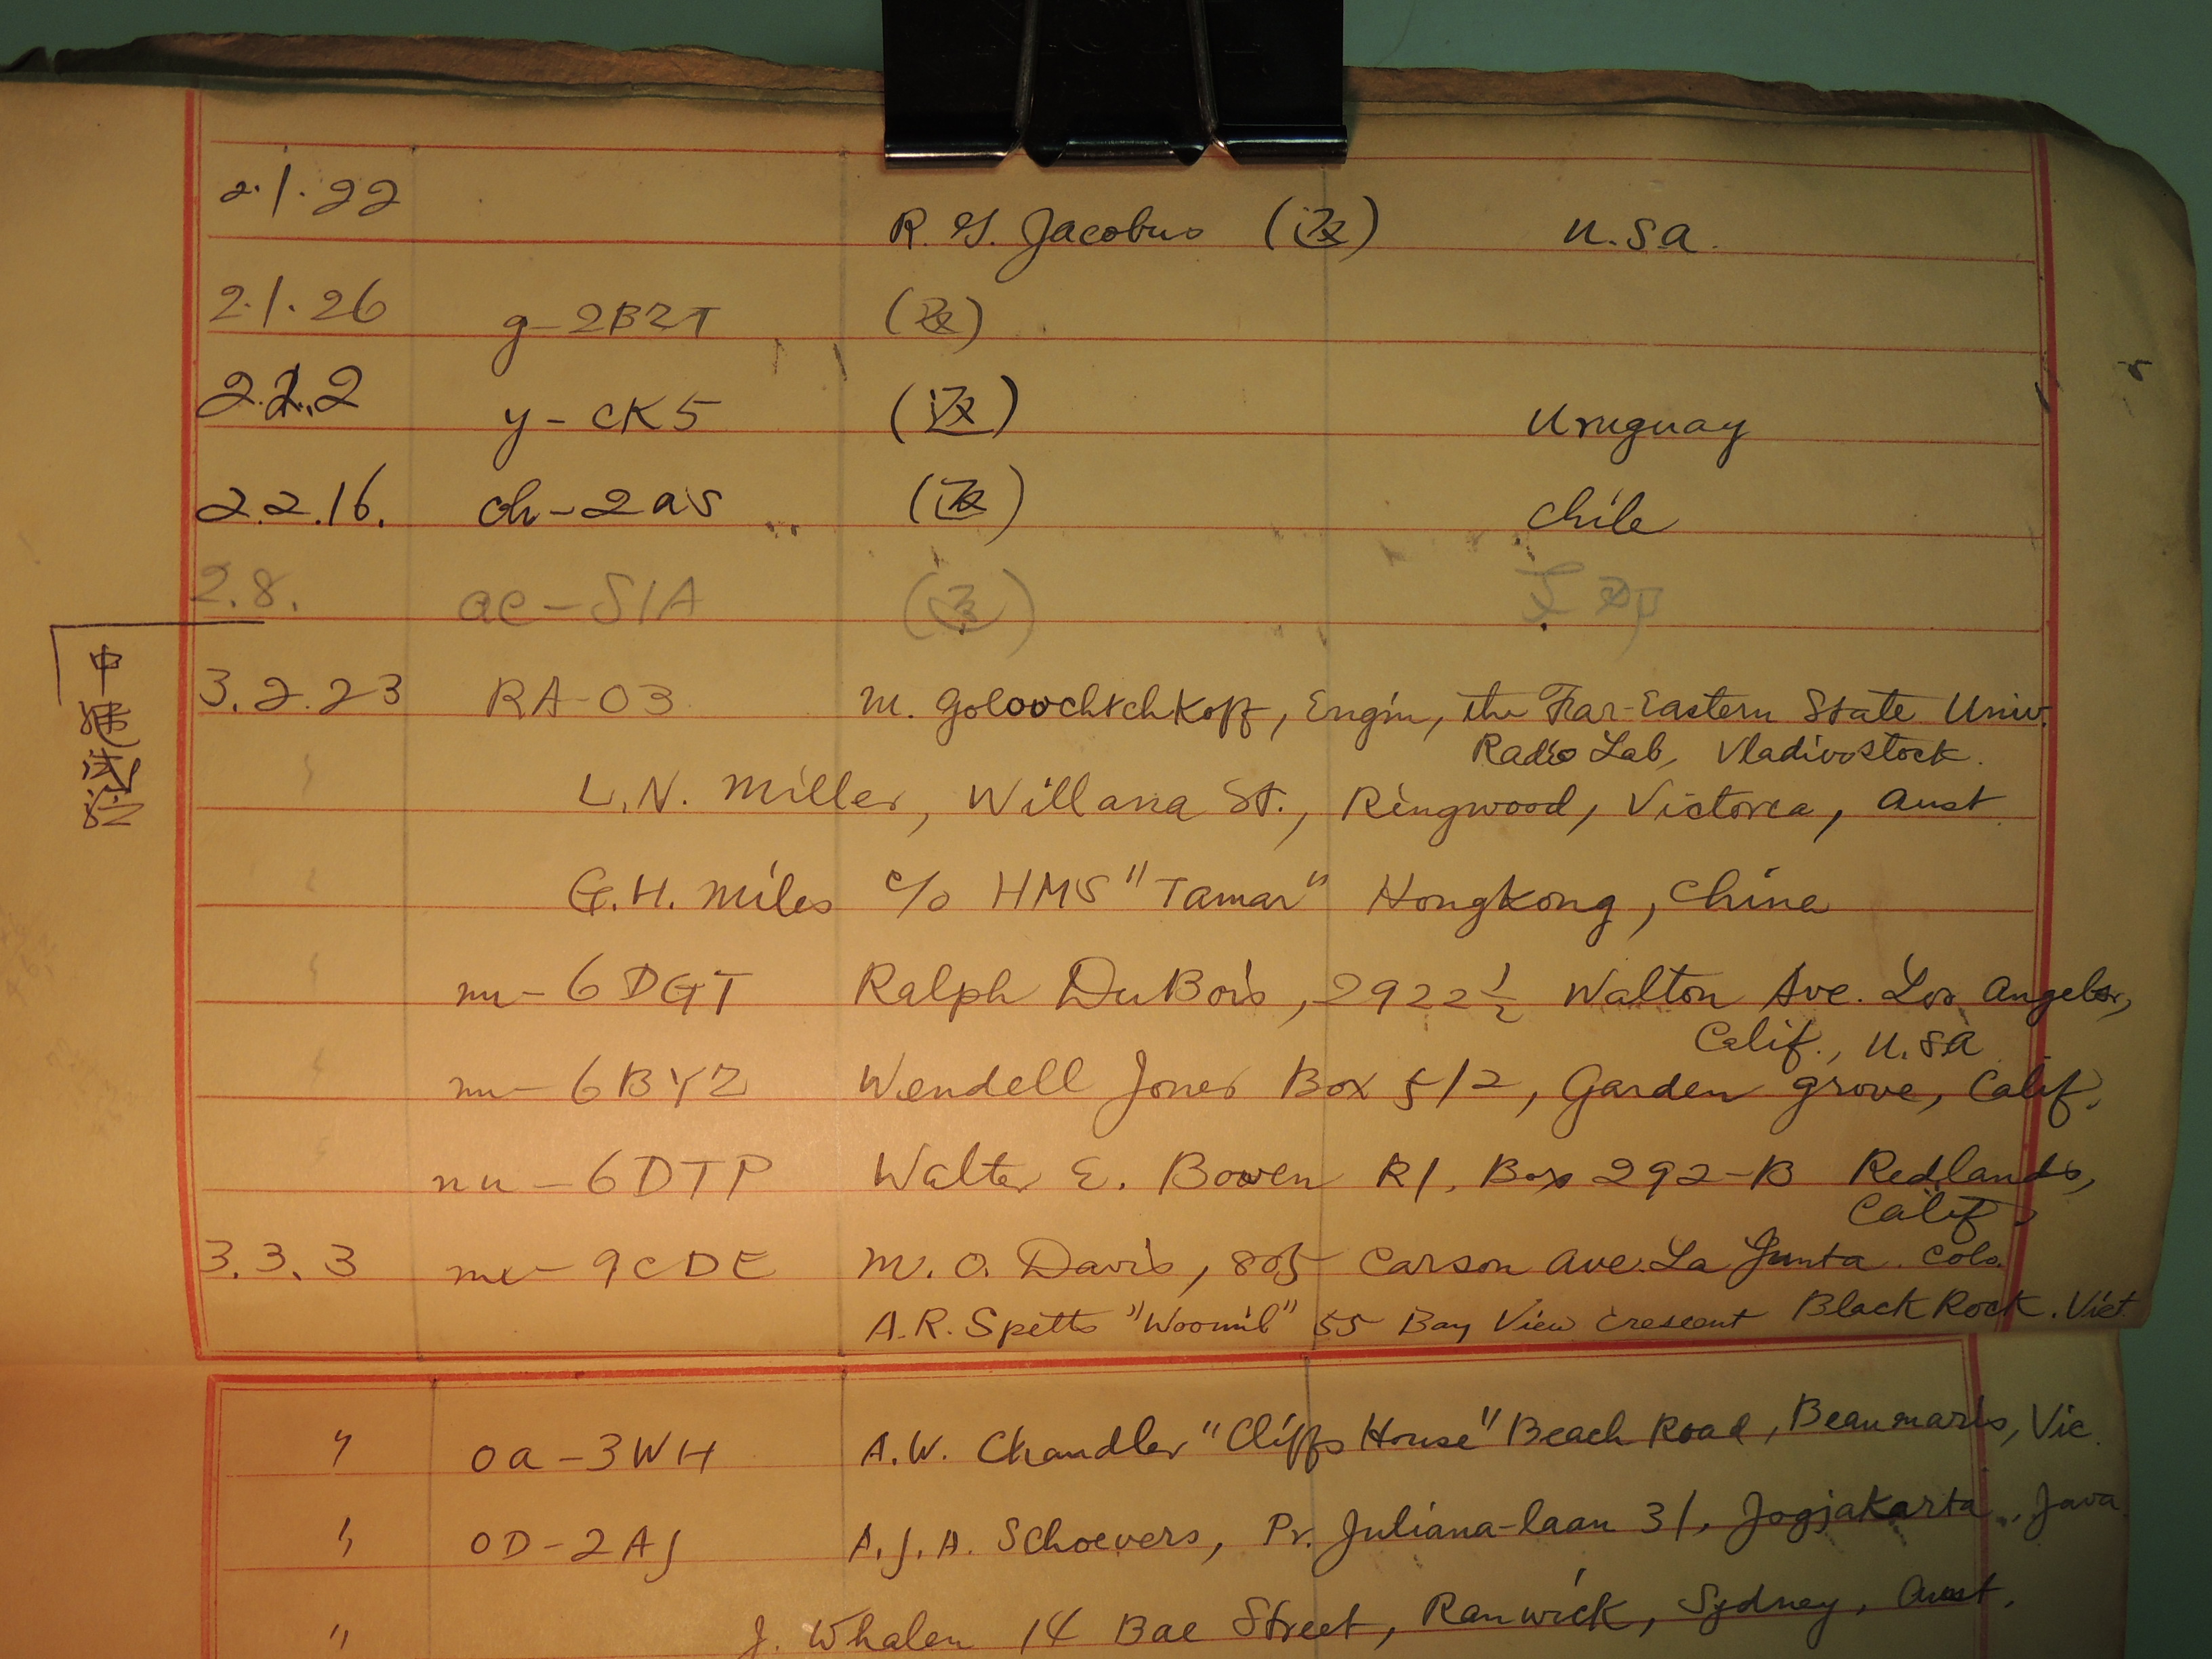 2.1.22 R. G. Jacobus (返) U.S.A.
2.1.26 g-2BZT (返)
2.2.2 y-CK5 (返) Uruguay
2.2.16. ch-2as (返) Chile
2.8. ac-S1A (返)
3.2.23 RA-03 M. Golovchtchkoff, Engin, the Far-Eastern State Univ.
Radio Lab, Vladivostock.
L.N. Miller, Willana St., Ringwood, Victorea, Aust
G.H. Miles c/o HMS "Tamar" Hongkong, China
nu-6DGT Ralph DuBois, 2922½ Walton Ave. Los Angeles,
Calif., U.S.A
nu-6BYZ Wendell Jones Box 512, Garden Grove, Calif.
nu-6DTP Walter E. Bowen R1, Box 292-B Redlands,
Calif.
3.3.3 nu-9CDE M.O. Davis, 805 Carson Ave. La Junta. Colo.
A.R. Spetts 55 Bay View Crescent Black Rock. Vict
〃 oa-3WH A.W. Chandler "Cliffs House" Beach Road, Beaumaris, Vic.
〃 OD-2AJ A.J.A. Schoevers, Pr. Juliana-laan 31, Jogjakarta, Java
〃 J. Whalen 14 Bae Street, Ranwick, Sydney, Aust.
中
試